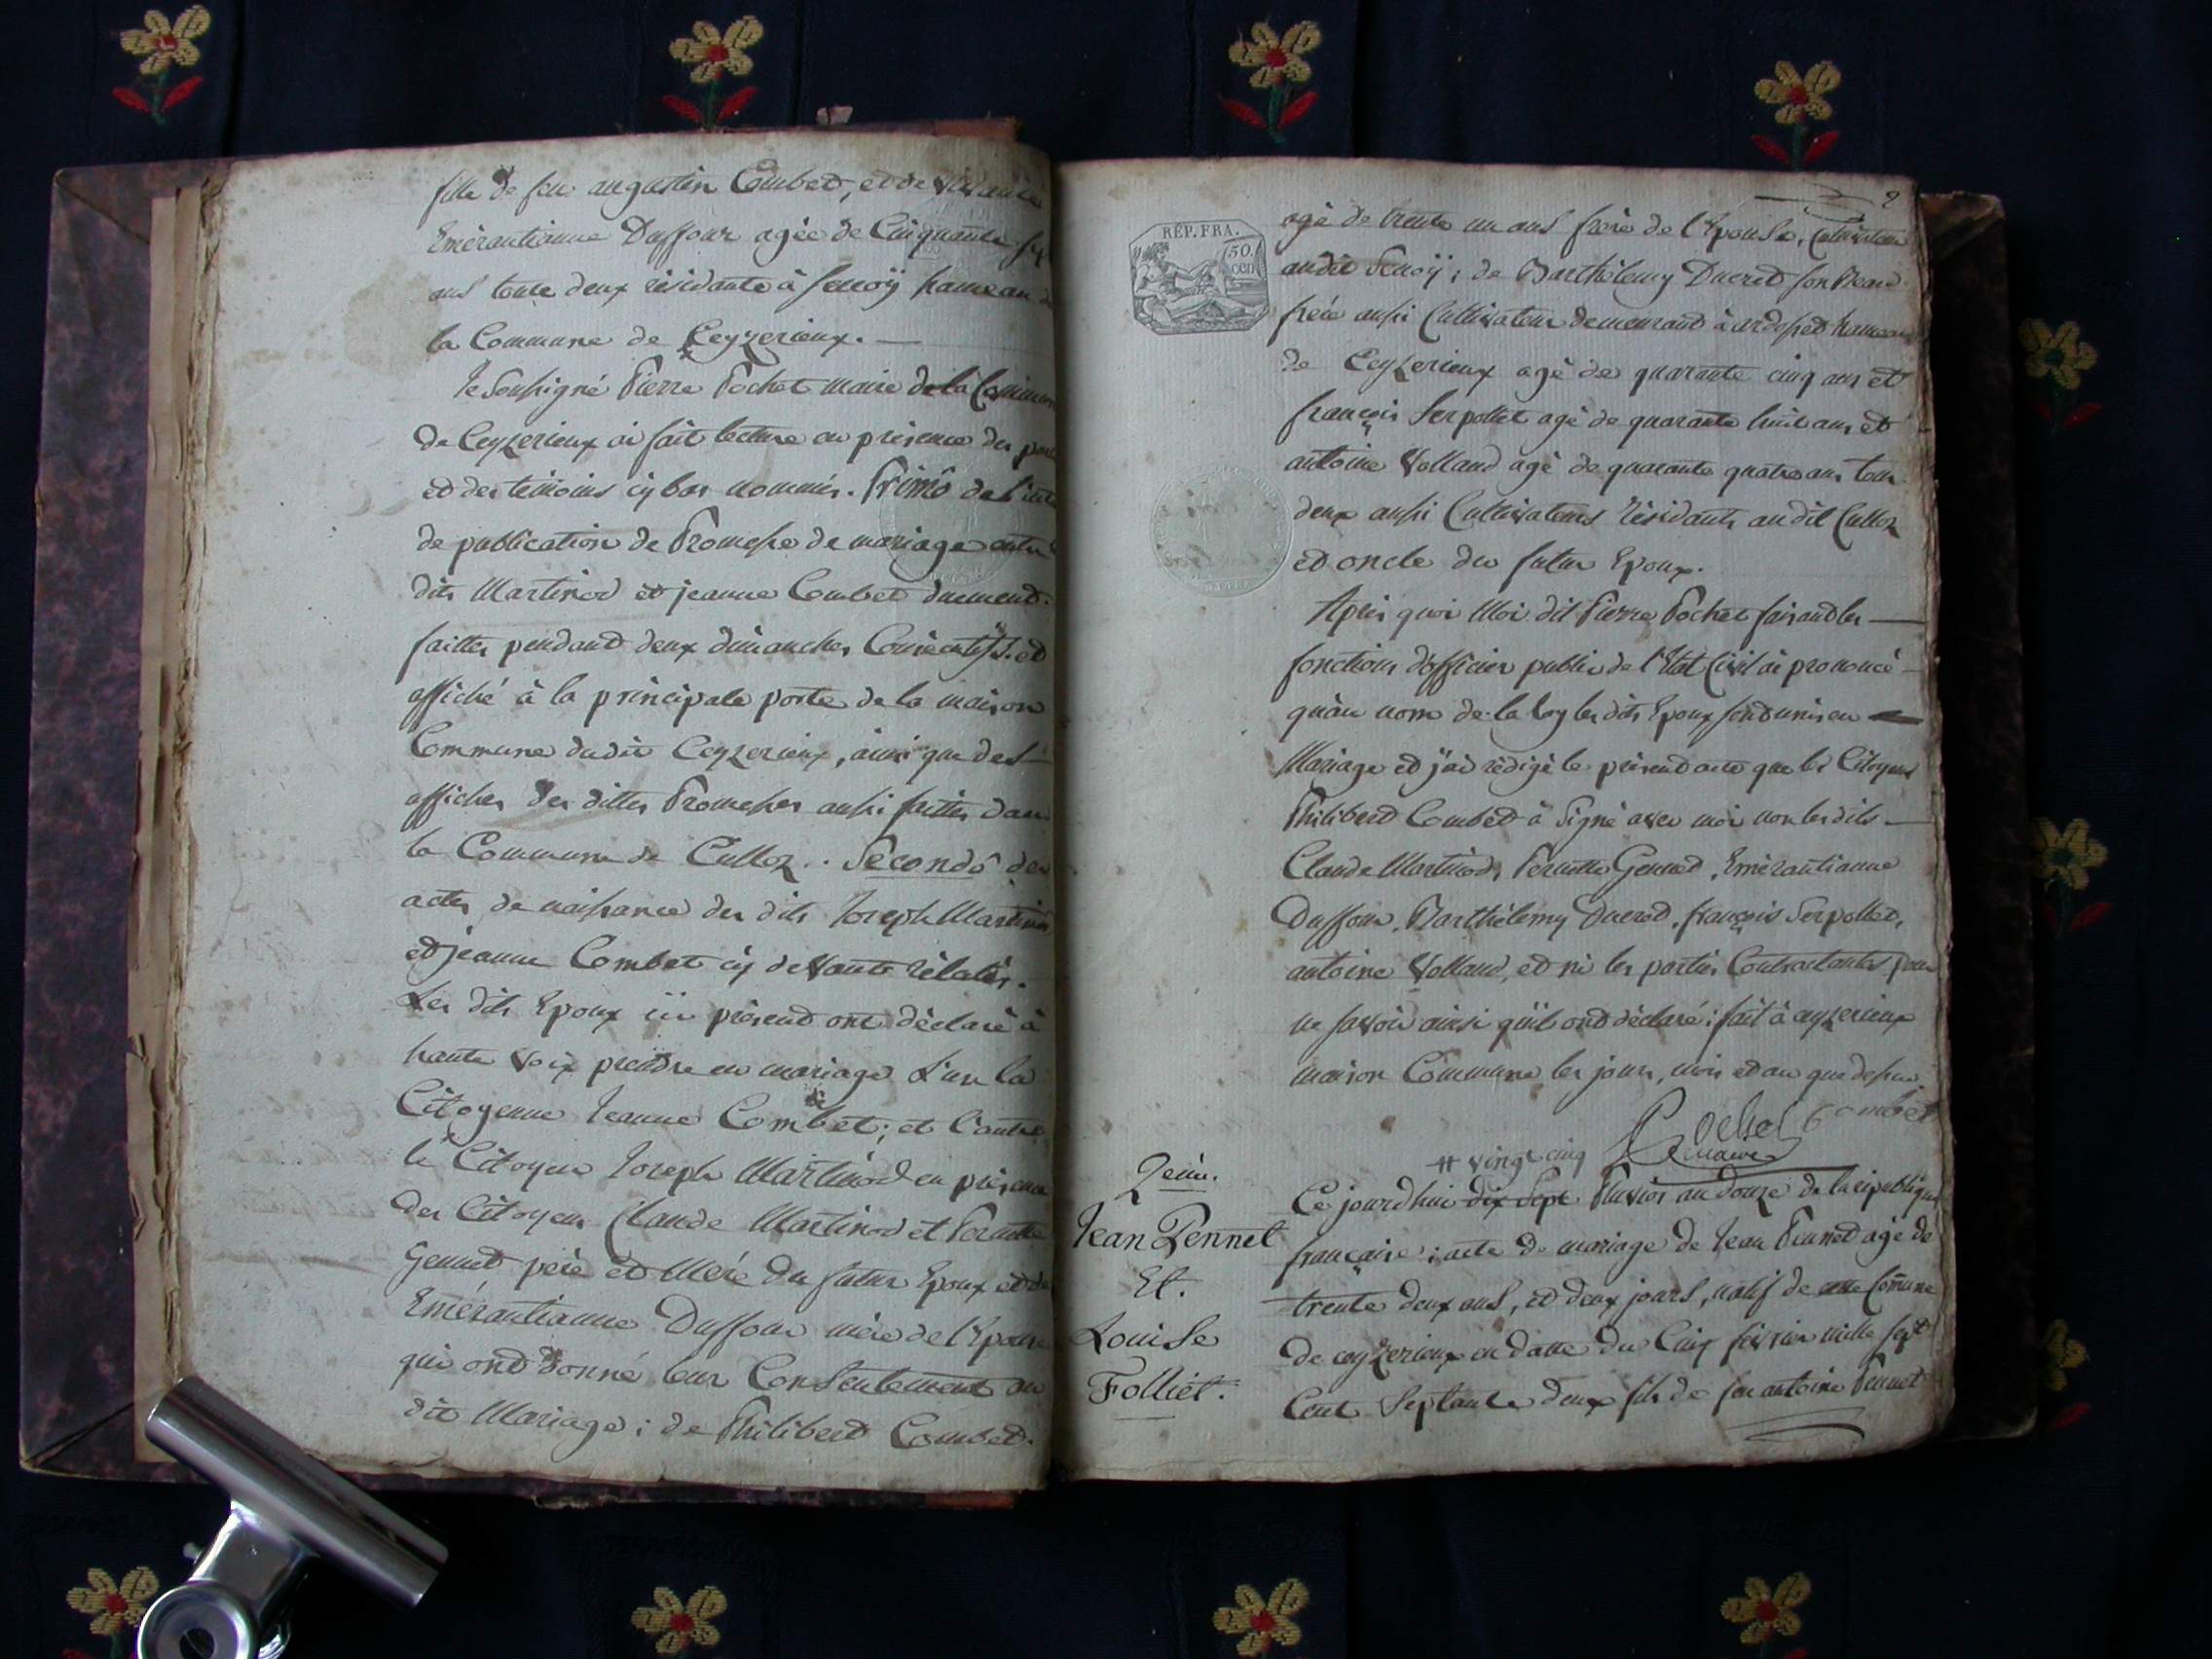 fille de feu augustin Combet, et de
Emérantianne Duffour agée de Cinquante
ans toute deux résidante à senoÿ hameau de
la Commune de Ceyzerieux.
Je Soussigné Pierre Pochet maire de la Commune
de Ceyzerieux ai fait lecture en présence des
et des témoins cy bas nommés. Primô de
de publication de Promesse de mariage entre
dits Martinod et jeanne Combet duement
faittes pendant deux dimanches Consécutifs et
affiché à la principale porte de la maison
Commune dudit Ceyzerieux, ainsi que des
affiches des dittes Promesses aussi faittes dans
la Commune de Culloz. Secondô des
actes de naissance des dits Joseph Martinod
et jeanne Combet cy devante rélatés.
Les dits Epoux ici présent ont déclaré à
haute voix prendre en mariage L'un la
Citoyenne Jeanne Combet; et l'autre
le Citoyen Joseph Martinod en présence
des Citoyens Claude Martinod et Pernette
Gennet père et Mére du futur Epoux et de
Emérantianne Duffour mère de l'Epouse
qui ont donné leur Consentement au
dit Mariage; de Philibert Combet.
2
RÉP. FRA.
50.
cen
agé de trente un ans frère de l'Epouse, Cultivateur
audit Senoÿ; de Barthélemy Ducret son Beau
frére aussi Cultivateur demeurant à ardosset hameau
de Ceyzerieux agé de quarante cinq ans et
françois Serpollet agé de quarante huit ans et
antoine Volland agé de quarante quatre ans tous
deux aussi Cultivateurs résidants au dit Culloz
et oncle du futur Epoux.
Après quoi Moi dit Pierre Pochet faisant les
fonctions d'officier public de l'Etat Civil ai prononcé
qu'au nom de la loy les dits Epoux sont unis en
Mariage et j'ai rédigé le présent acte que le Citoyen
Philibert Combet à Signé avec moi non les dits
Claude Martinod, Pernette Gennet, Emérantianne
Duffour, Barthélemy Ducret, françois Serpollet,
antoine Volland, et ni les parties Contractantes pour
ne savoir ainsi qu'il ont déclaré; fait à ceyzerieux
maison Commune les jours, mois et an que dessus.
Pochet Combet
maire
# vingt cinq
2eme.
Jean Pennet
Et.
Louise
Folliet.
Ce jourdhui dix Sept Pluvios an douze de la république
française; acte de mariage de Jean Pennet agé de
trente deux ans, et deux jours, natif de cette Comune
de ceyzerieux en datte du Cinq février mille sept
Cent Septante deux fils de feu antoine Pennet